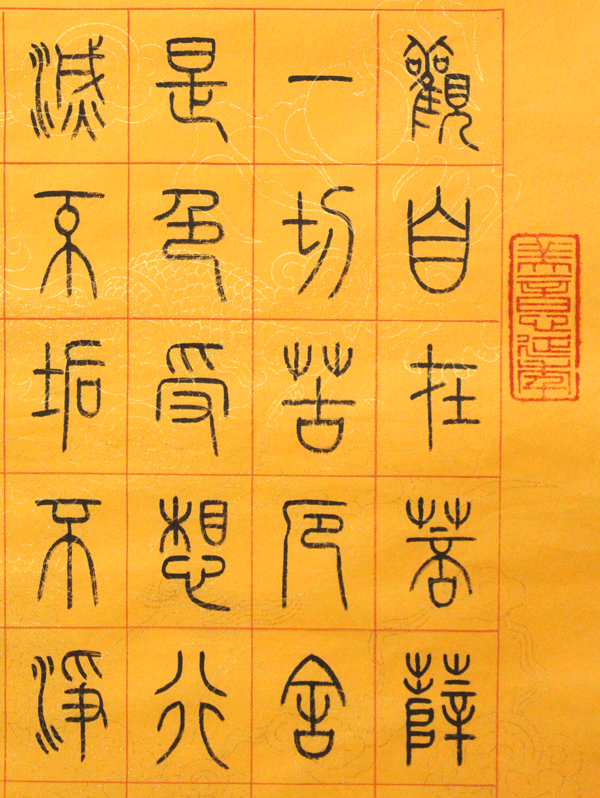 觀自在菩薩
一切苦厄舍
是色受想行
滅不垢不淨
美意延年